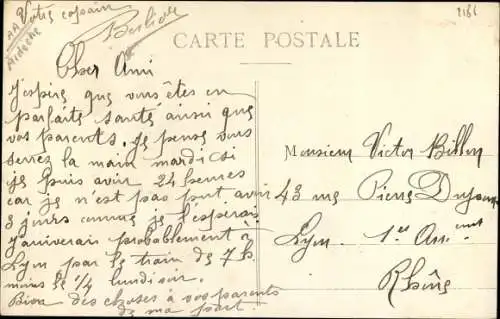 Votre copain
AA
Ardèche
2166
CARTE POSTALE
Cher Ami
J'espère que vous êtes en
parfaite santé ainsi que
vos parents. Je pense vous
serrez la main mardi si
je puis avoir 24 heures
car je n'est pas put avoir
3 jours comme je l'esperais
J'arriverais probablement à
Lyon par le train de 7 h
moins le 1/4 lundi soir.
Bien des choses à vos parents
de ma part.
Monsieur Victor Billon
43 rue Pierre Dupont
Lyon. 1er Arr.ment
Rhône